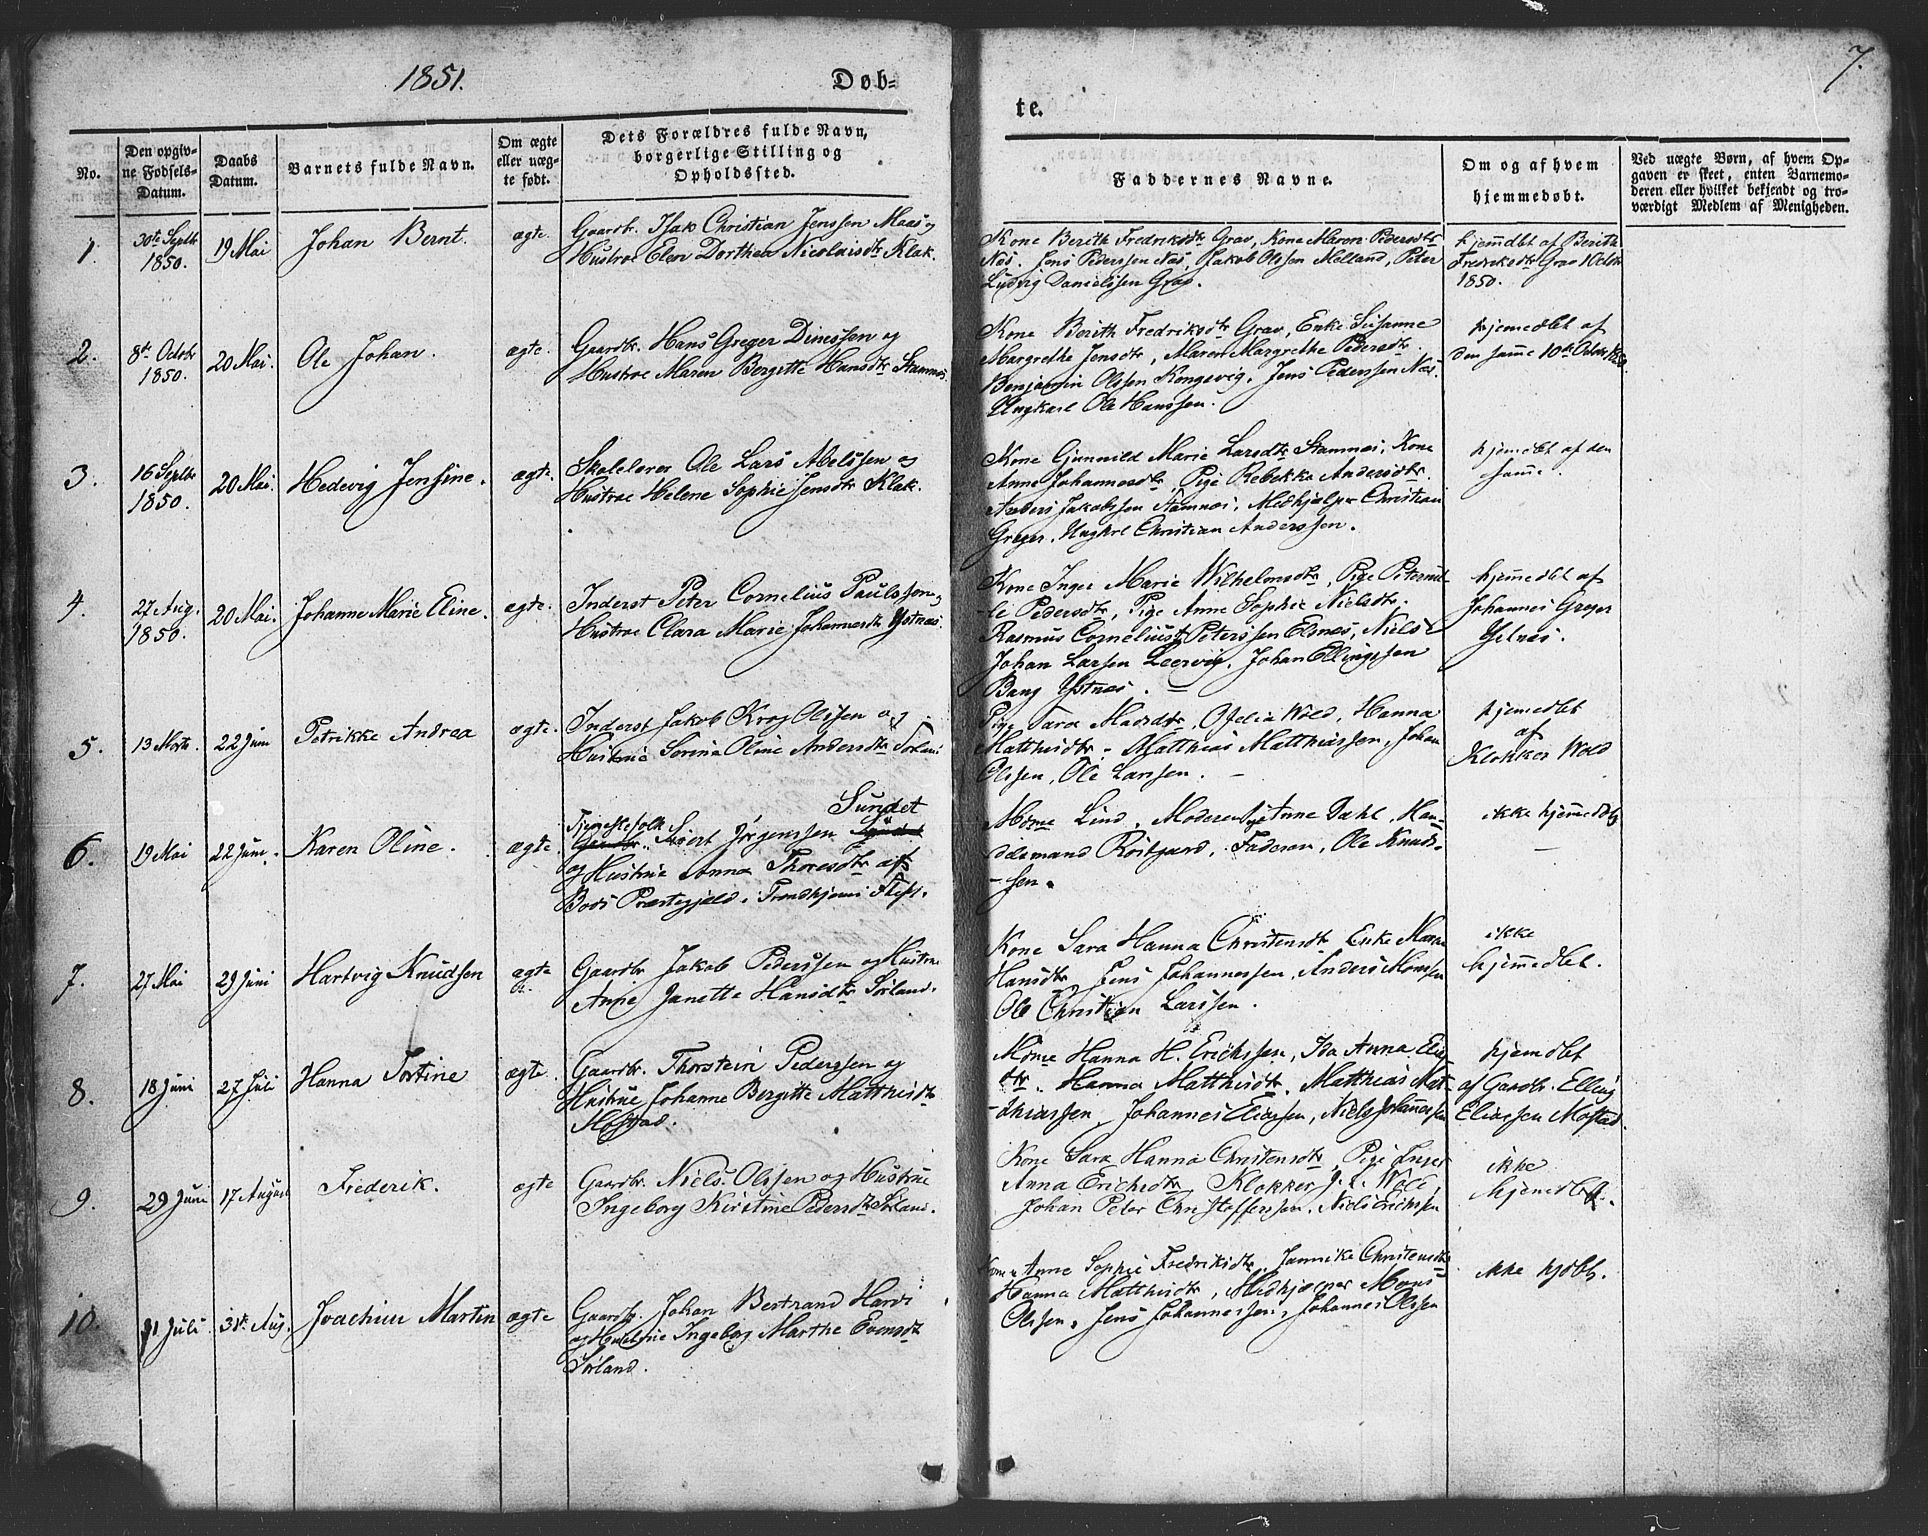 1851.
Døb=
te.
7.
No.
Den opgiv=
ne Fødsels=
Datum.
Daabs
Datum.
Barnets fulde Navn.
Om ægte
eller uæg=
te født.
Dets Forældres fulde Navn,
borgerlige Stilling og
Opholdssted.
Faddernes Navne.
Om og af hvem
hjemmedøbt.
Ved uægte Børn, af hvem Op=
gaven er skeet, enten Barnemo=
deren eller hvilket bekjendt og tro=
værdigt Medlem af Menigheden.
1.
30te Septbr
1850.
19 Mai
Johan Bernt.
ægte
Gaardbr. Isak Christian Jenssen Maas og
Hustroe Elen Dorthea Nicolaisdtr Klak.
Kone Berith Fredriksdtr Grav, Kone Maren Pedersdtr
Næs. Jens Pederssen Næs, Jakob Olssen Melland, Peter
Ludvig Danielssen Grav.
hjemdbt af Berith
Fredriksdtr Grav 1 Octbr
1850.
2.
8de Octbr
1850.
20 Mai.
Ole Johan.
ægte.
Gaardbr. Hans Greger Dinessen og
Hustroe Maren Bergitte Hansdtr Stamnes.
Kone Berith Fredriksdtr Grav, Enke Susanne
Margrethe Jensdtr, Maren Margrethe Pedersdtr.
Benjamin Olssen Kongsvig, Jens Pederssen Næs.
Ungkarl Ole Hanssen.
hjemedbt af
den samme 10de Octbr 1850.
3.
16 Septbr
1850.
20 Mai.
Hedevig Jensine.
ægte.
Skolelærer Ole Lars Abelssen og
Hustroe Helene Sophie Jensdtr Klak.
Kone Gunnild Marie Larsdtr Stamnes, Kone
Anne Johannesdtr, Pige Rebekka Andersdtr.
Anders Jakobssen Stamnes, Medhjælper Christian
Greger. Ungkrl Christian Anderssen.
hjemedbt af den
samme.
4.
27 Aug.
1850.
20 Mai.
Johanne Marie Eline.
ægte.
Inderst Peter Cornelius Paulssen og
Hustroe Clara Marie Johannesdtr Ystnæs.
Kone Inger Marie Wilhelmsdtr, Pige Peternil-
le Pedersdtr, Pige Anne Sophie Nielsdtr.
Rasmus Cornelius Peterssen Elsnes, Niels
Johan Larsen Leervig, Johan Ellingssen
Bang Ystnæs.
hjemedbt af
Johannes Greger
Ystnæs.
5.
13 Marts.
22 Juni
Petrikke Andrea
ægte.
Inderst Jakob Krog Olssen og
Hustrue Sørina Oline Andersdtr Sørland
Pige Sara Madsdtr, Ofelia Wold, Hanna
Matthisdtr. Matthias Matthiassen, Johan
Olssen, Ole Larssen.
hjemedbt
af
Klokker Wold
6.
19 Mai
22 Juni.
Karen Oline.
ægte.
Sundet
Tjenestefolk
Gaardbr. Sivert Jørgenssen Sundet
og Hustrue Anna Thoresdtr af
Bods Præstegjeld, Trondhjems Stift.
Mdme Lind, Moderen, Pige Anne Dahl. Han=
delsmand Rostgard, Faderen, Ole Knuds-
-sen.
ikke hjemmedbt
7.
27 Mai
29 Juni
Hartvig Knudsen
ægte
Gaardbr Jakob Pederssen og Hustrue
Anne Janette Hansdtr Sørland.
Kone Sara Hanna Christensdtr Enke Maren
Hansdtr Jens Johannessen, Anders Monssen
Ole Christian Larssen.
ikke
hjemedbt.
8.
18 Juni
27 Juli
Hanna Tortine
ægte.
Gaardbr. Thorstein Pederssen og
Hustrue Johanne Bergitte Matthisdtr
Mostad.
Mdme Hanna H. Erichssen, Ida Anna Elias-
dtr. Hanna Matthisdtr, Matthias Mat-
-thiassen, Johannes Eliassen, Niels Johannessen
hjemdbt
af Gaardbr. Elling
Eliassen Mostad.
9.
29 Juni
17 August
Frederik.
ægte
Gaardbr. Niels Olssen og Hustrue
Ingeborg Kirstine Pedersdtr Sørland.
Kone Sara Hanna Christensdtr, Pige Inger
Anna Erichsdtr, Klokker J. L. Wold
Johan Peter Christofferssen. Niels Erichssen
ikke
hjemedbt.
10.
31 Juli
31te Aug.
Joachim Martin
ægte
Gaardbr. Johan Bertrand Hardi
og Hustrue Ingeborg Marthe Evensdtr
Sørland.
Kone Anne Sophie Fredriksdtr. Jannike Christensdtr
Hanna Matthisdtr, Medhjælper Mons
Olssen, Jens Johannessen, Johannes Olssen
ikke hjdbt.